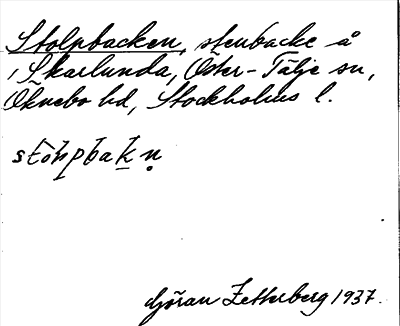 Stolpbacken, stenbacke å
i Skarlunda, Öster-Tälje sn,
Öknebo hd, Stockholms l.
Göran Zetterberg 1937.